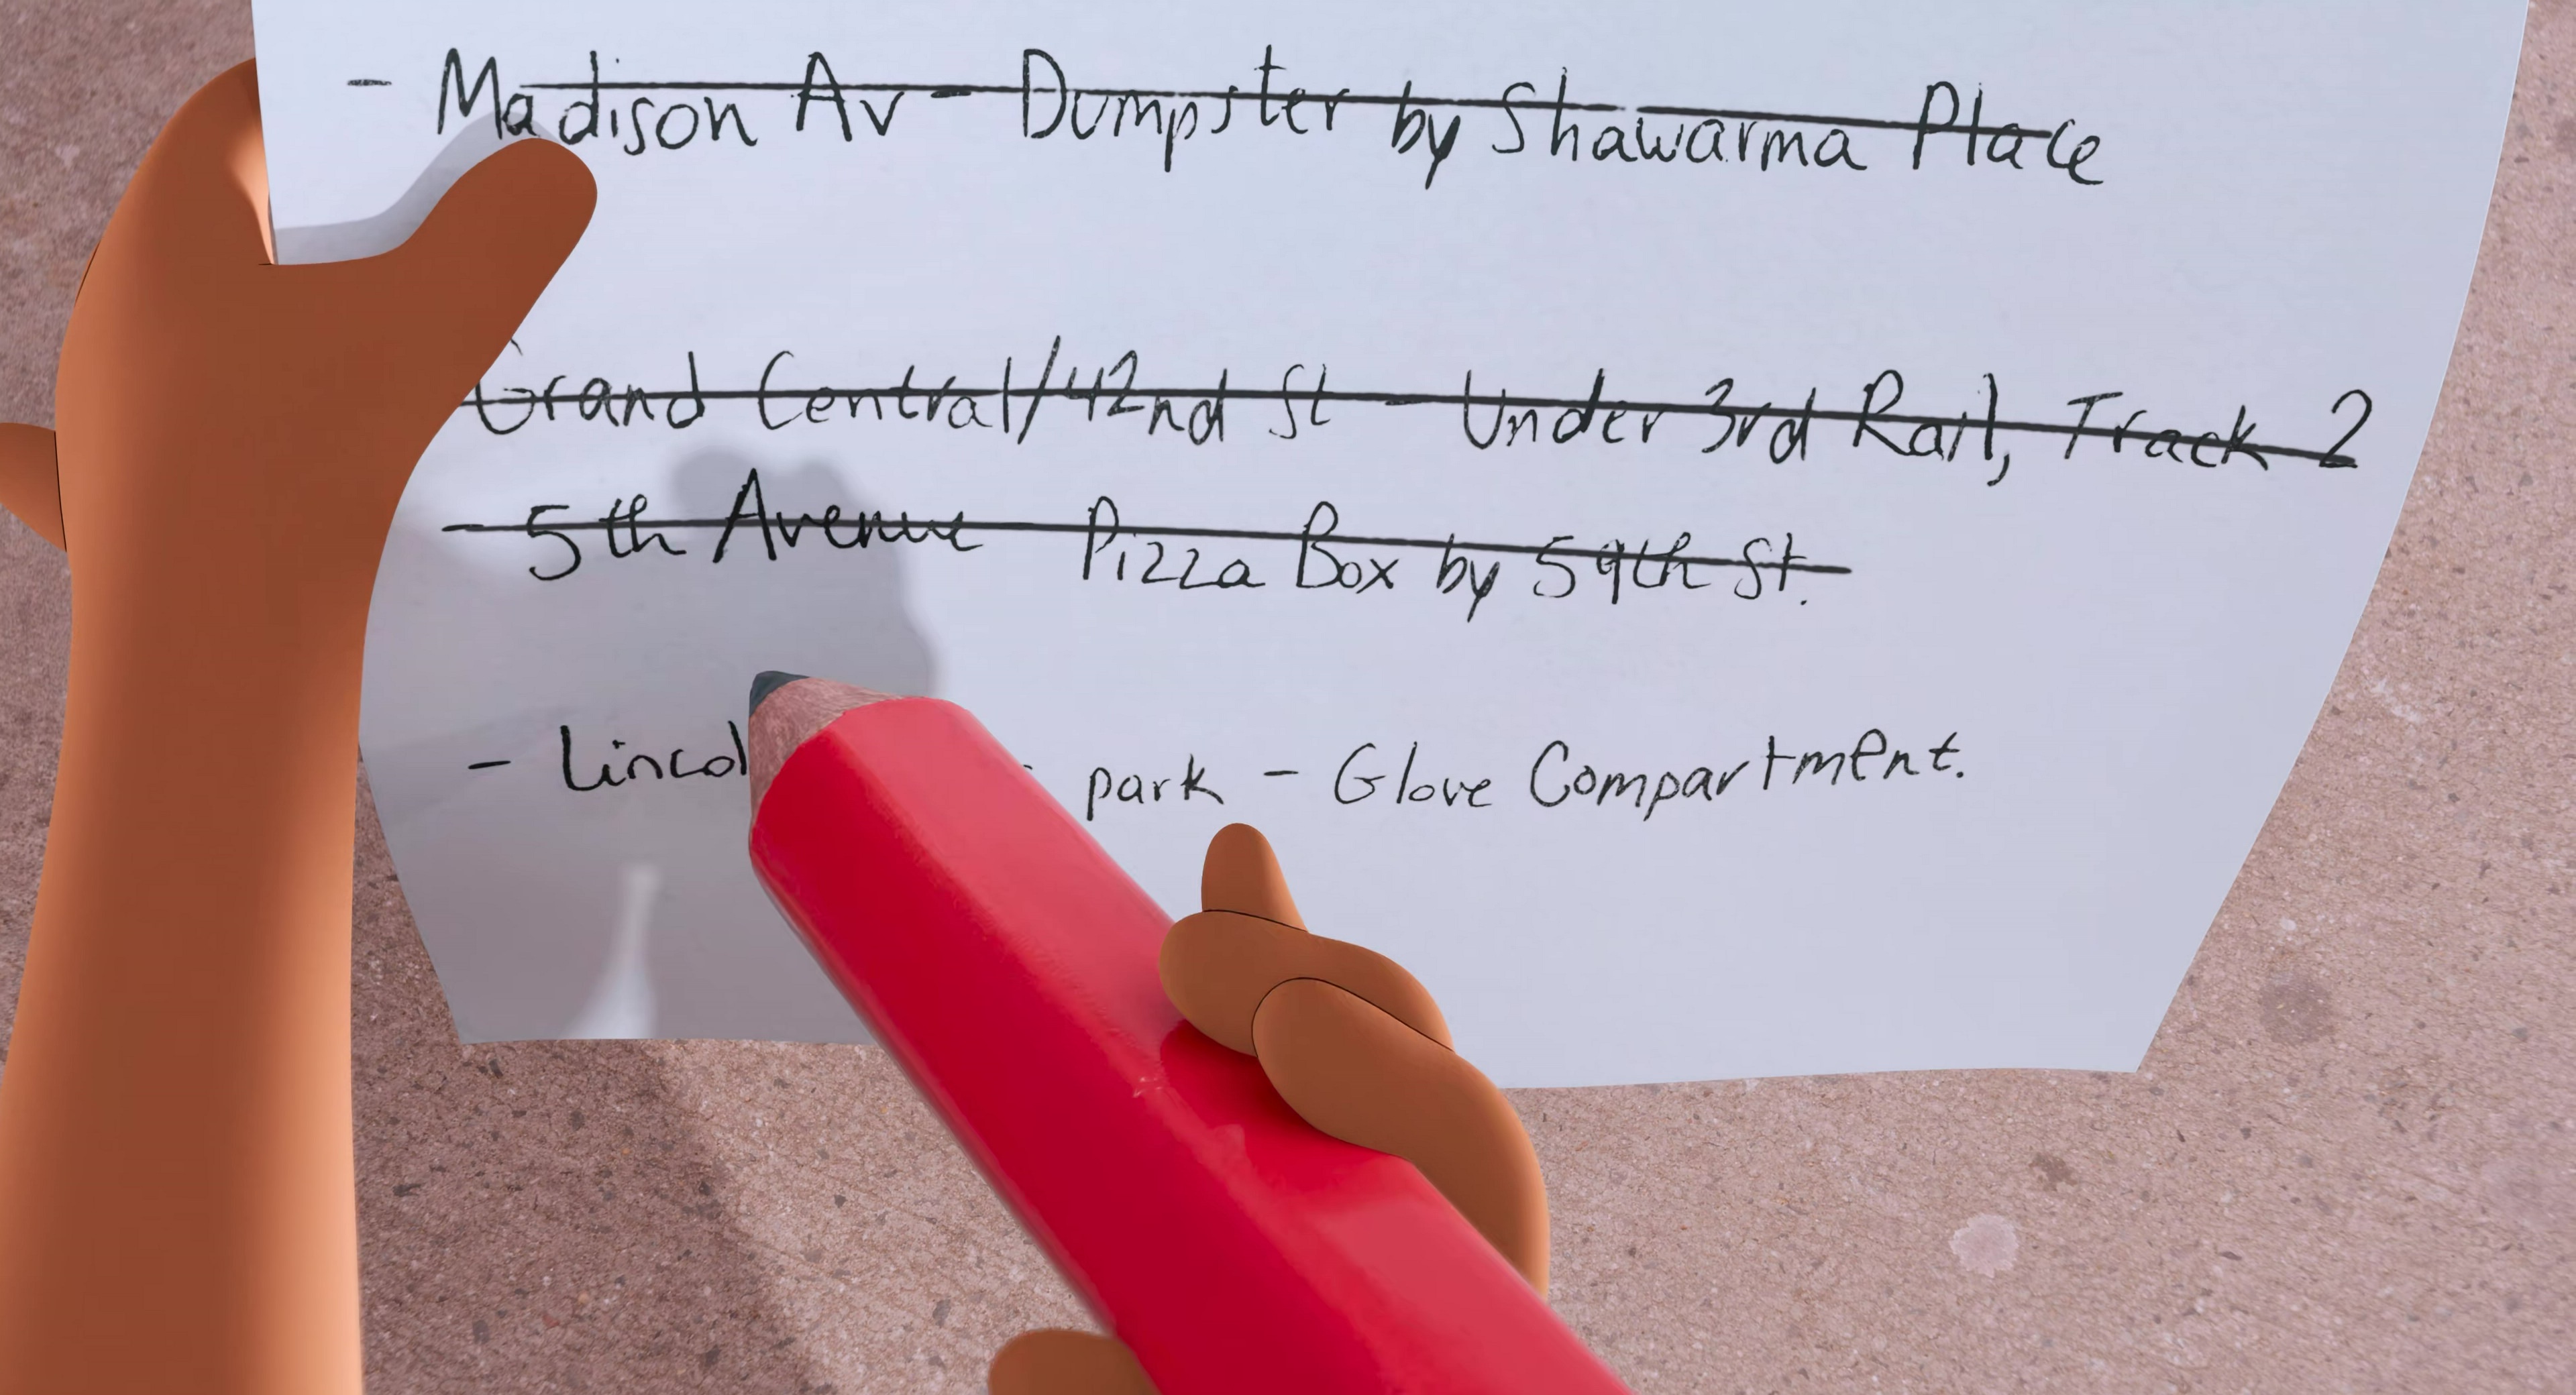 - Madison Av - Dumpster by Shawarma Place
Grand Central/42nd St - Under 3rd Rail, Track 2
- 5th Avenue Pizza Box by 59th St.
- park - Glove Compartment.